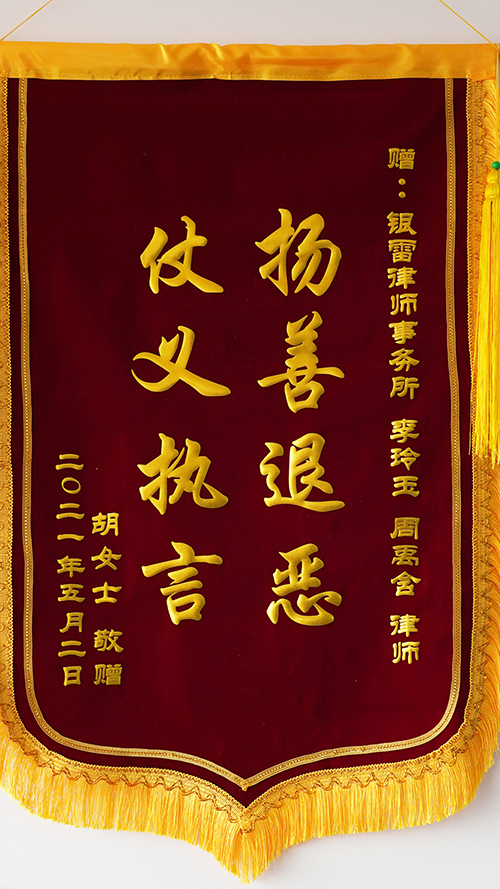 赠：银雷律师事务所 李玲玉 周禹含 律师
扬善退恶
仗义执言
胡女士 敬赠
二〇二一年五月二日